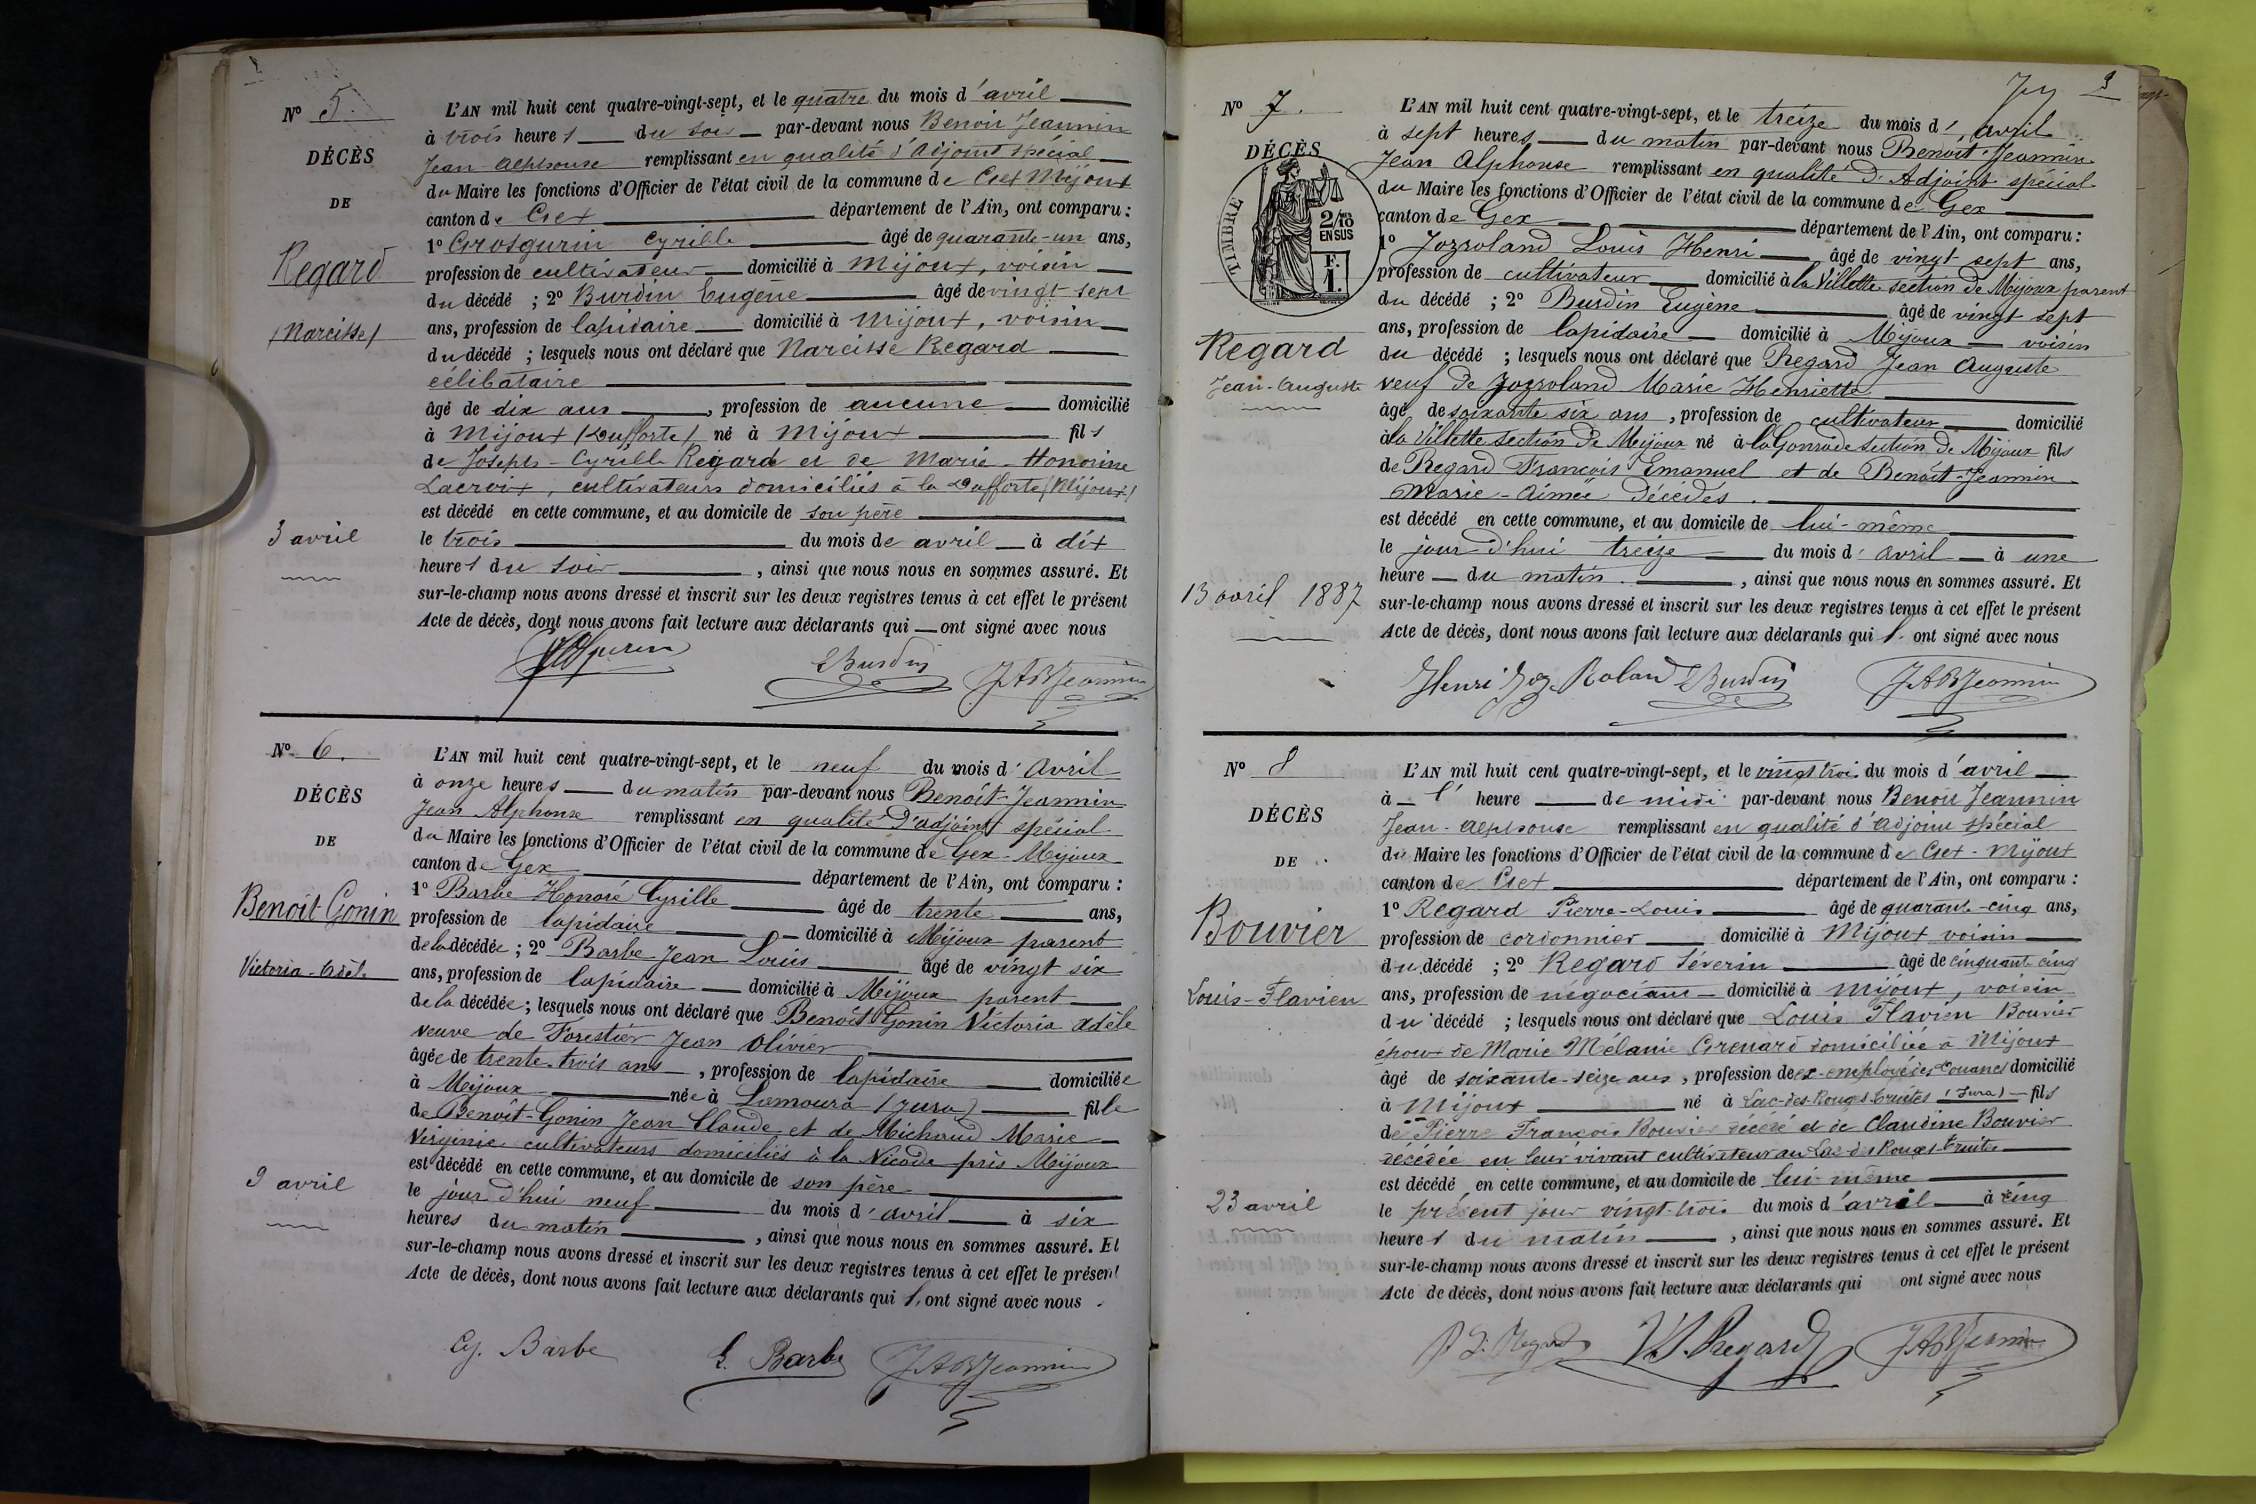 N° 5.
DÉCÈS
DE
Regard
(Narcisse)
3 avril
L'AN mil huit cent quatre-vingt-sept, et le quatre du mois d'avril
à trois heures du soir par-devant nous Benoit Jeannin
Jean-Alphonse remplissant en qualité d'Adjoint spécial
du Maire les fonctions d'Officier de l'état civil de la commune de Gex Mijoux
canton de Gex département de l'Ain, ont comparu :
1° Grosgurin Cyrille âgé de quarante-un ans,
profession de cultivateur domicilié à Mijoux, voisin
du décédé ; 2° Burdin Eugène âgé de vingt sept
ans, profession de lapidaire domicilié à Mijoux, voisin
du décédé ; lesquels nous ont déclaré que Narcisse Regard
célibataire
âgé de dix ans, profession de aucune domicilié
à Mijoux né à Mijoux fils
de Joseph-Cyrille Regard et de Marie-Honorine
Lacroix, cultivateurs domiciliés à la (Mijoux)
est décédé en cette commune, et au domicile de son père
le trois du mois de avril à dix
heures du soir, ainsi que nous nous en sommes assuré. Et
sur-le-champ nous avons dressé et inscrit sur les deux registres tenus à cet effet le présent
Acte de décès, dont nous avons fait lecture aux déclarants qui ont signé avec nous
EBurdin JABJeannin
N° 6.
DÉCÈS
DE
Benoit Gonin
Victoria-Adèle
9 avril
L'AN mil huit cent quatre-vingt-sept, et le neuf du mois d'Avril
à onze heures du matin par-devant nous Benoît-Jeannin
Jean Alphonse remplissant en qualité d'adjoint spécial
du Maire les fonctions d'Officier de l'état civil de la commune de Gex-Mijoux
canton de Gex département de l'Ain, ont comparu :
1° Barbe Honoré Cyrille âgé de trente ans,
profession de lapidaire domicilié à Mijoux parent
de la décédée ; 2° Barbe Jean Louis âgé de vingt six
ans, profession de lapidaire domicilié à Mijoux parent
de la décédée ; lesquels nous ont déclaré que Benoît Gonin Victoria Adèle
veuve de Forestier Jean Olivier
âgée de trente-trois ans, profession de lapidaire domiciliée
à Mijoux née à Lamoura (Jura) fille
de Benoît-Gonin Jean Claude et de Michaud Marie
Virginie cultivateurs domiciliés à la Nicode près Mijoux
est décédé en cette commune, et au domicile de son père
le jour d'hui neuf du mois d'avril à six
heures du matin, ainsi que nous nous en sommes assuré. Et
sur-le-champ nous avons dressé et inscrit sur les deux registres tenus à cet effet le présent
Acte de décès, dont nous avons fait lecture aux déclarants qui ont signé avec nous.
Cy. Barbe L. Barbe JABJeannin
3
N° 7.
DÉCÈS
TIMBRE
2/10 EN SUS
F. 1.
Regard
Jean-Auguste
13 avril 1887
L'AN mil huit cent quatre-vingt-sept, et le treize du mois d'avril
à sept heures du matin par-devant nous Benoît-Jeannin
Jean Alphonse remplissant en qualité d'Adjoint spécial
du Maire les fonctions d'Officier de l'état civil de la commune de Gex
canton de Gex département de l'Ain, ont comparu :
1° Jozroland Louis Henri âgé de vingt sept ans,
profession de cultivateur domicilié à la Villette section de Mijoux parent
du décédé ; 2° Burdin Eugène âgé de vingt sept
ans, profession de lapidaire domicilié à Mijoux voisin
du décédé ; lesquels nous ont déclaré que Regard Jean Auguste
veuf de Jozroland Marie Henriette
âgé de soixante six ans, profession de cultivateur domicilié
à la Villette section de Mijoux né à la section de Mijoux fils
de Regard François Emanuel et de Benoît-Jeannin
Marie-Aimée décédés.
est décédé en cette commune, et au domicile de lui-même
le jour d'hui treize du mois d'avril à une
heure du matin., ainsi que nous nous en sommes assuré. Et
sur-le-champ nous avons dressé et inscrit sur les deux registres tenus à cet effet le présent
Acte de décès, dont nous avons fait lecture aux déclarants qui ont signé avec nous
Henri Joz-Roland EBurdin JABJeannin
N° 8
DÉCÈS
DE
Bouvier
Louis-Flavien
23 avril
L'AN mil huit cent quatre-vingt-sept, et le vingt trois du mois d'avril
à 1 heure de midi par-devant nous Benoit Jeannin
Jean-Alphonse remplissant en qualité d'adjoint spécial
du Maire les fonctions d'Officier de l'état civil de la commune de Gex-Mijoux
canton de Gex département de l'Ain, ont comparu :
1° Regard Pierre-Louis âgé de quarante-cinq ans,
profession de cordonnier domicilié à Mijoux voisin
du décédé ; 2° Regard Séverin âgé de cinquante cinq
ans, profession de négociant domicilié à Mijoux, voisin
du décédé ; lesquels nous ont déclaré que Louis Flavien Bouvier
époux de Marie Mélanie Grenard domiciliée à Mijoux
âgé de soixante-seize ans, profession de ex-employé des Douanes domicilié
à Mijoux né à Lac-des-Rouges-Truites (Jura) fils
de Pierre François Bouvier décédé et de Claudine Bouvier
décédée en leur vivant cultivateur au Lac-des-Rouges-Truites
est décédé en cette commune, et au domicile de lui-même
le présent jour vingt-trois du mois d'avril à cinq
heures du matin, ainsi que nous nous en sommes assuré. Et
sur-le-champ nous avons dressé et inscrit sur les deux registres tenus à cet effet le présent
Acte de décès, dont nous avons fait lecture aux déclarants qui ont signé avec nous
P. L. Regard VS.Regard JABJeannin